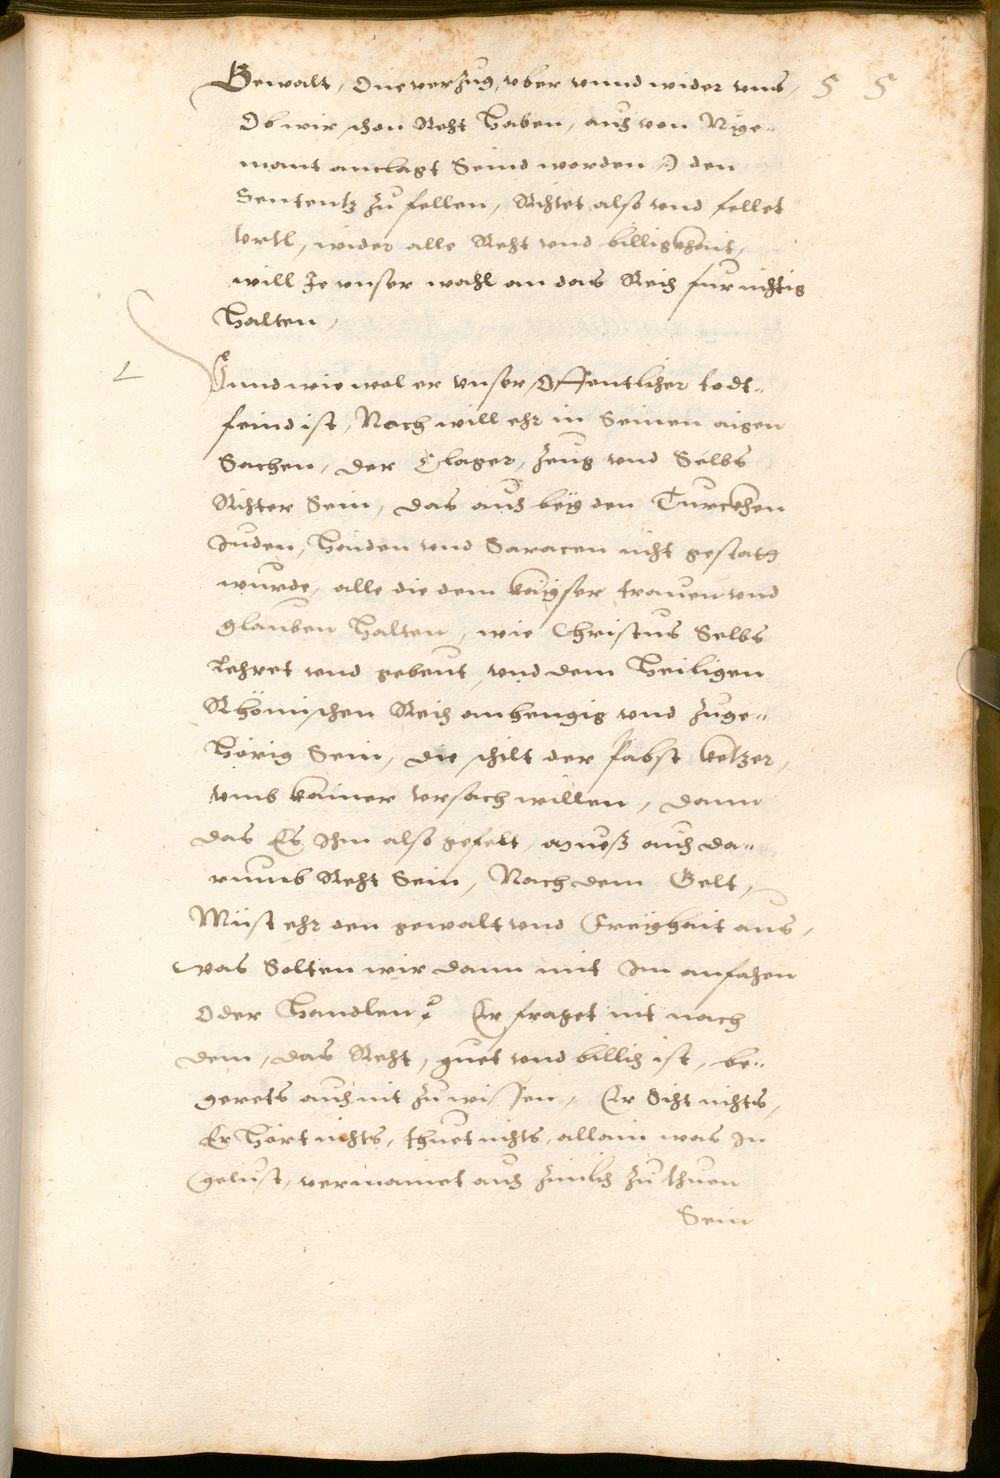 Gewalt, One verzug, vber vnnd wider vns, 5 5
Ob wir schon Recht Haben, auch von Nye-
mant anclagt Seind worden :) den
Sententz zu fellen, Richtet also vnd fellet
Vrtl, wider alle Recht vnd billigkhait,
will Je vnser wahl an das Reich fur nichtig
Halten,
Vnnd wie wol er vnser Offentlicher todt-
feind ist, Noch will ehr in Seinen aigen
Sachen, der Clager, Zeug vnd Selbs
Richter Sein, das auch bey den Turckhen
Juden, Haiden vnd Saracen nicht gestath
wurde, alle die dem kayser trauen vnd
glauben Halten, wie Christus Selbs
Lehret vnd gebeut, vnd dem Heiligen
Rhömischen Reich anhengig vnd zuge-
Hörig Sein, die schilt der Pabst ketzer,
vmb kainer vrsach willen, dann
das Es Ihm also gefelt, mueß auch da-
rumb Recht Sein, Nach dem Gelt,
Müst ehr den gewalt vnd Freyhait aus,
was Solten wir dann mit Im anfahen
Oder Handlen? Er fraget nit nach
dem, das Recht, guet vnd billich ist, be-
gerets auch nit zu wissen, Er Sicht nichts,
Er Hört nichts, thuet nichts, allain was In
gelust, vermainet auch zimlich zu thuen
Sein